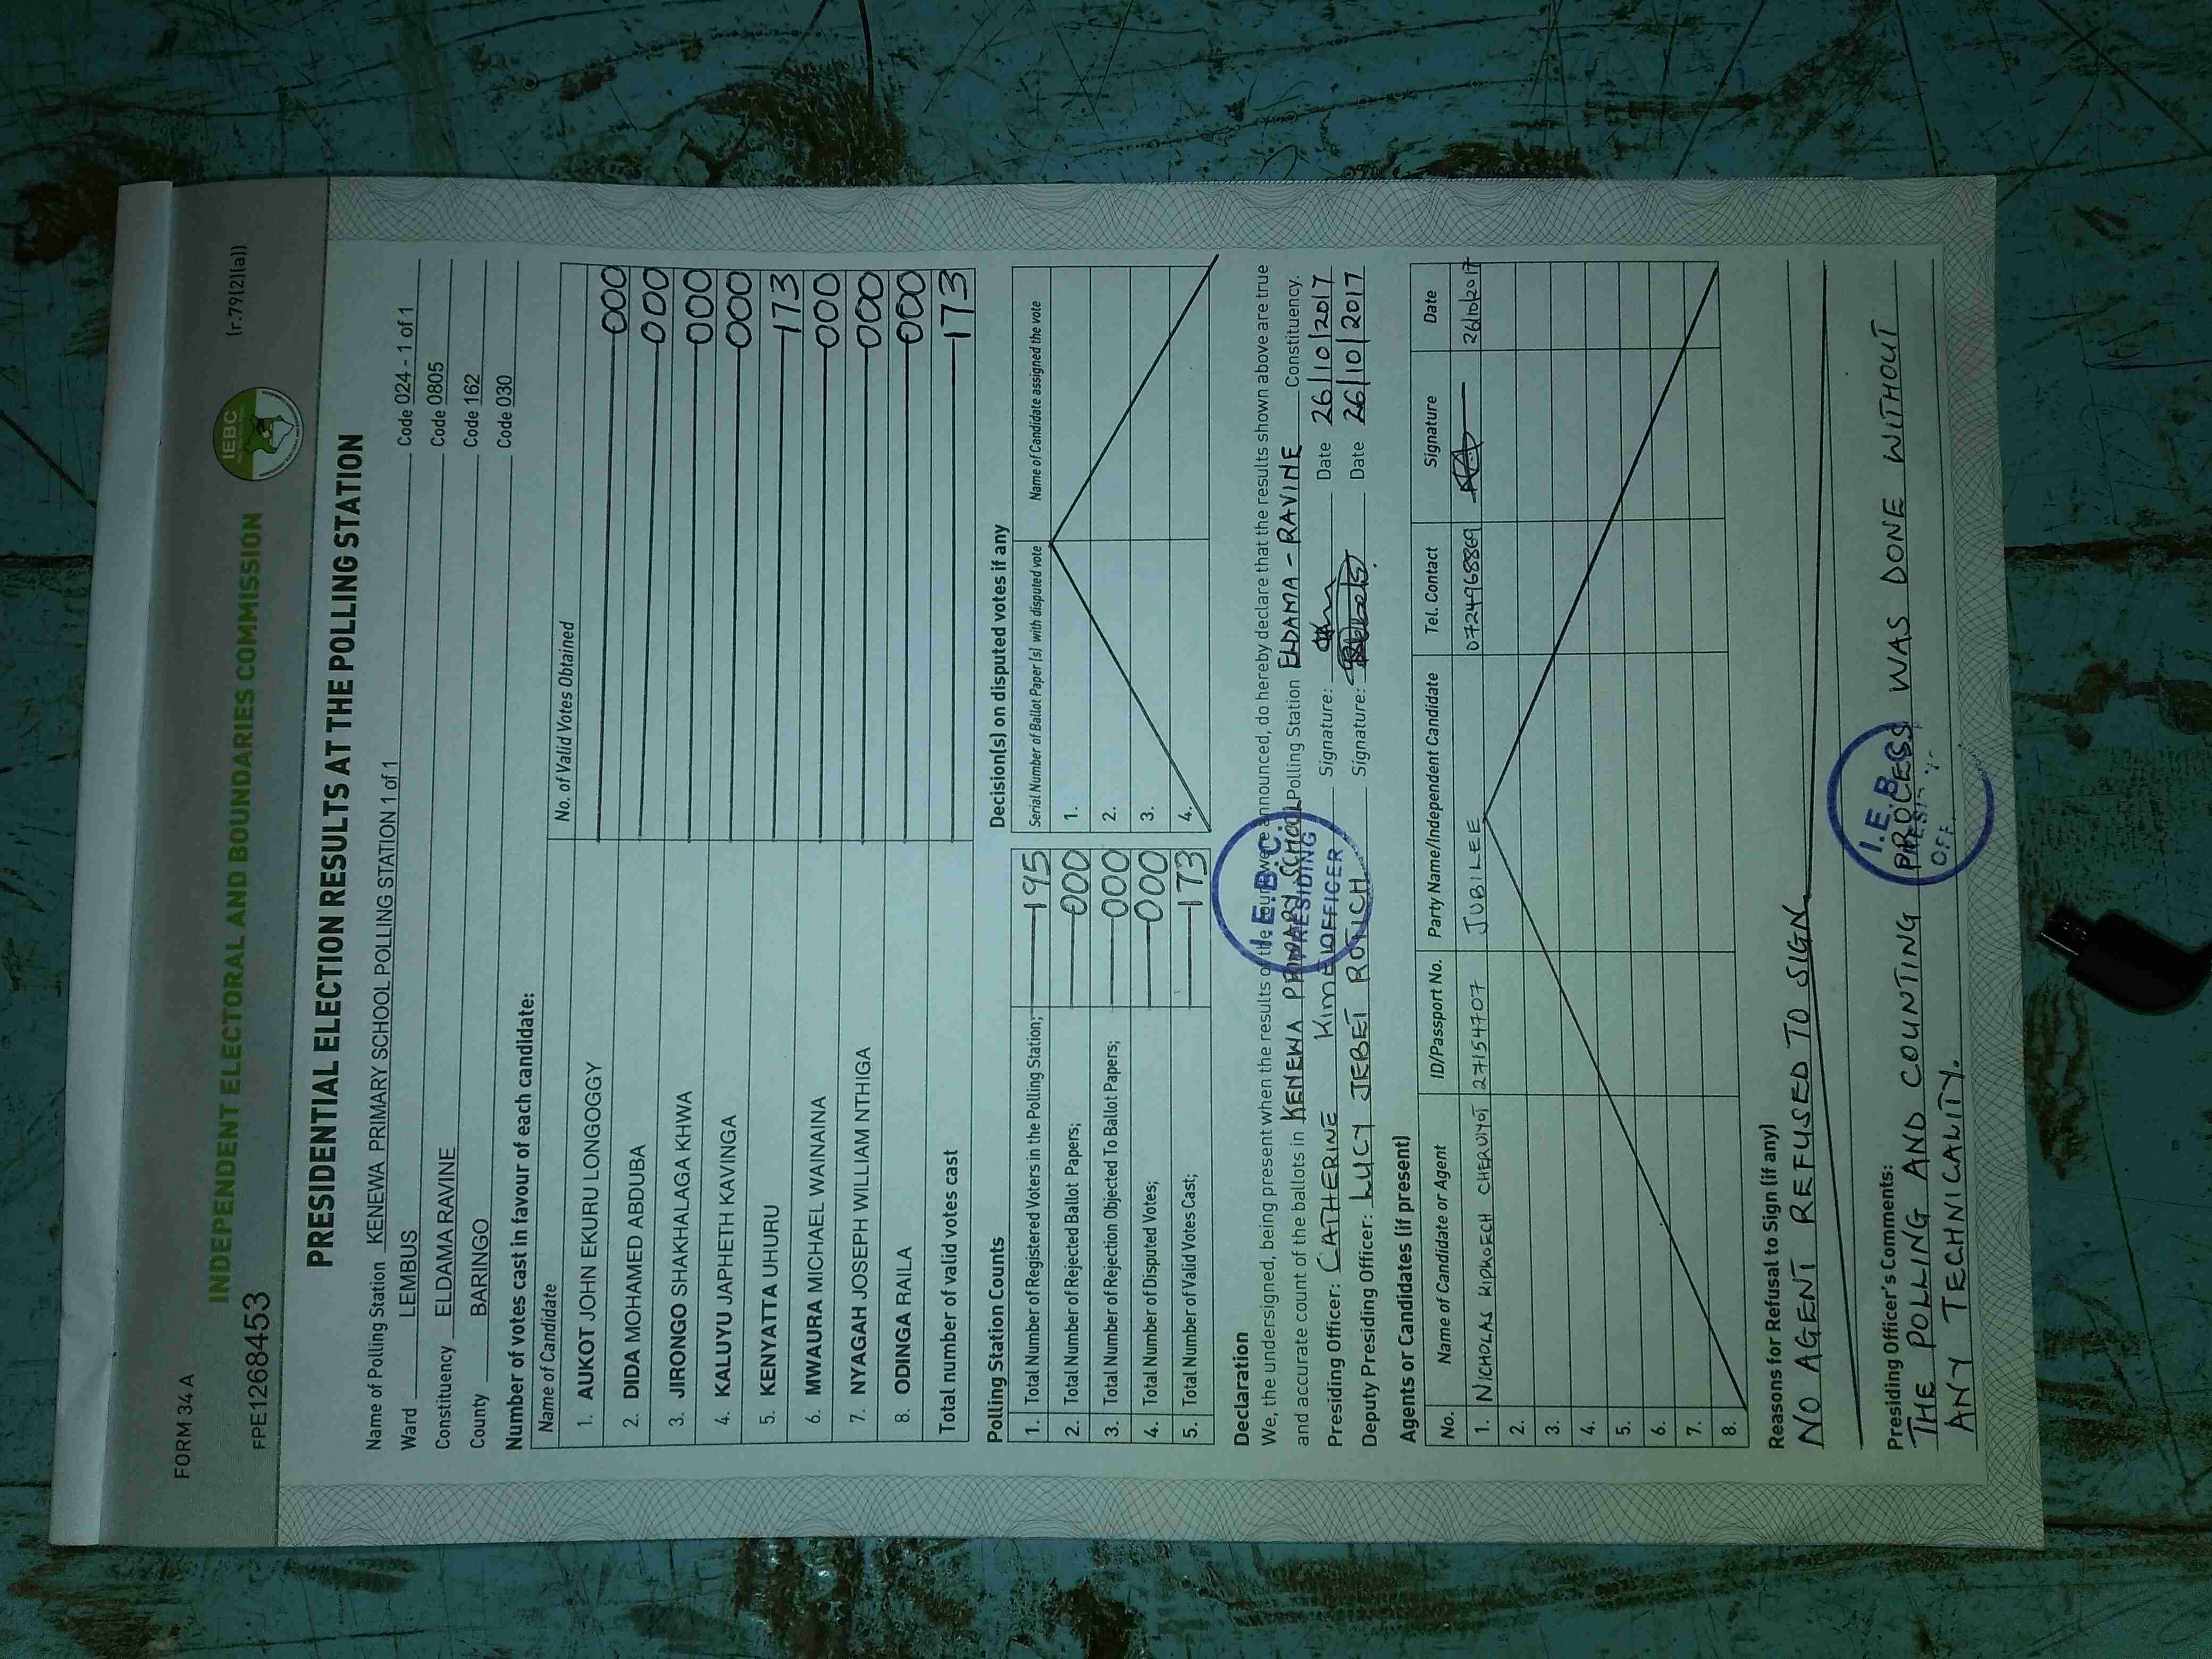 FORM 34 A
(r.79(2)(a))
INDEPENDENT ELECTORAL AND BOUNDARIES COMMISSION
IEBC
FPE1268453
PRESIDENTIAL ELECTION RESULTS AT THE POLLING STATION
Name of Polling Station KENEWA PRIMARY SCHOOL POLLING STATION 1 of 1 Code 024 - 1 of 1
Ward LEMBUS Code 0805
Constituency ELDAMA RAVINE Code 162
County BARINGO Code 030
Number of votes cast in favour of each candidate:
Name of Candidate No. of Valid Votes Obtained
1. AUKOT JOHN EKURU LONGOGGY 000
2. DIDA MOHAMED ABDUBA 000
3. JIRONGO SHAKHALAGA KHWA 000
4. KALUYU JAPHETH KAVINGA 000
5. KENYATTA UHURU 173
6. MWAURA MICHAEL WAINAINA 000
7. NYAGAH JOSEPH WILLIAM NTHIGA 000
8. ODINGA RAILA 000
Total number of valid votes cast 173
Polling Station Counts
1. Total Number of Registered Voters in the Polling Station; 195
2. Total Number of Rejected Ballot Papers; 000
3. Total Number of Rejection Objected To Ballot Papers; 000
4. Total Number of Disputed Votes; 000
5. Total Number of Valid Votes Cast; 173
Decision(s) on disputed votes if any
Serial Number of Ballot Paper(s) with disputed vote Name of Candidate assigned the vote
1.
2.
3.
4.
Declaration
We, the undersigned, being present when the results of the count were announced, do hereby declare that the results shown above are true
and accurate count of the ballots in KENEWA PRIMARY SCHOOL Polling Station ELDAMA - RAVINE Constituency.
Presiding Officer: CATHERINE KIMEI Signature: Date 26/10/2017
Deputy Presiding Officer: LUCY JEBET ROTICH Signature: Date 26/10/2017
I.E.B.C.
PRESIDING
OFFICER
Agents or Candidates (if present)
No. Name of Candidate or Agent ID/Passport No. Party Name/Independent Candidate Tel. Contact Signature Date
1. NICHOLAS KIPKOECH CHERUIYOT 27154707 JUBILEE 0724968869 26/10/2017
2.
3.
4.
5.
6.
7.
8.
Reasons for Refusal to Sign (if any)
NO AGENT REFUSED TO SIGN
Presiding Officer's Comments:
THE POLLING AND COUNTING PROCESS WAS DONE WITHOUT
ANY TECHNICALITY.
I.E.B.